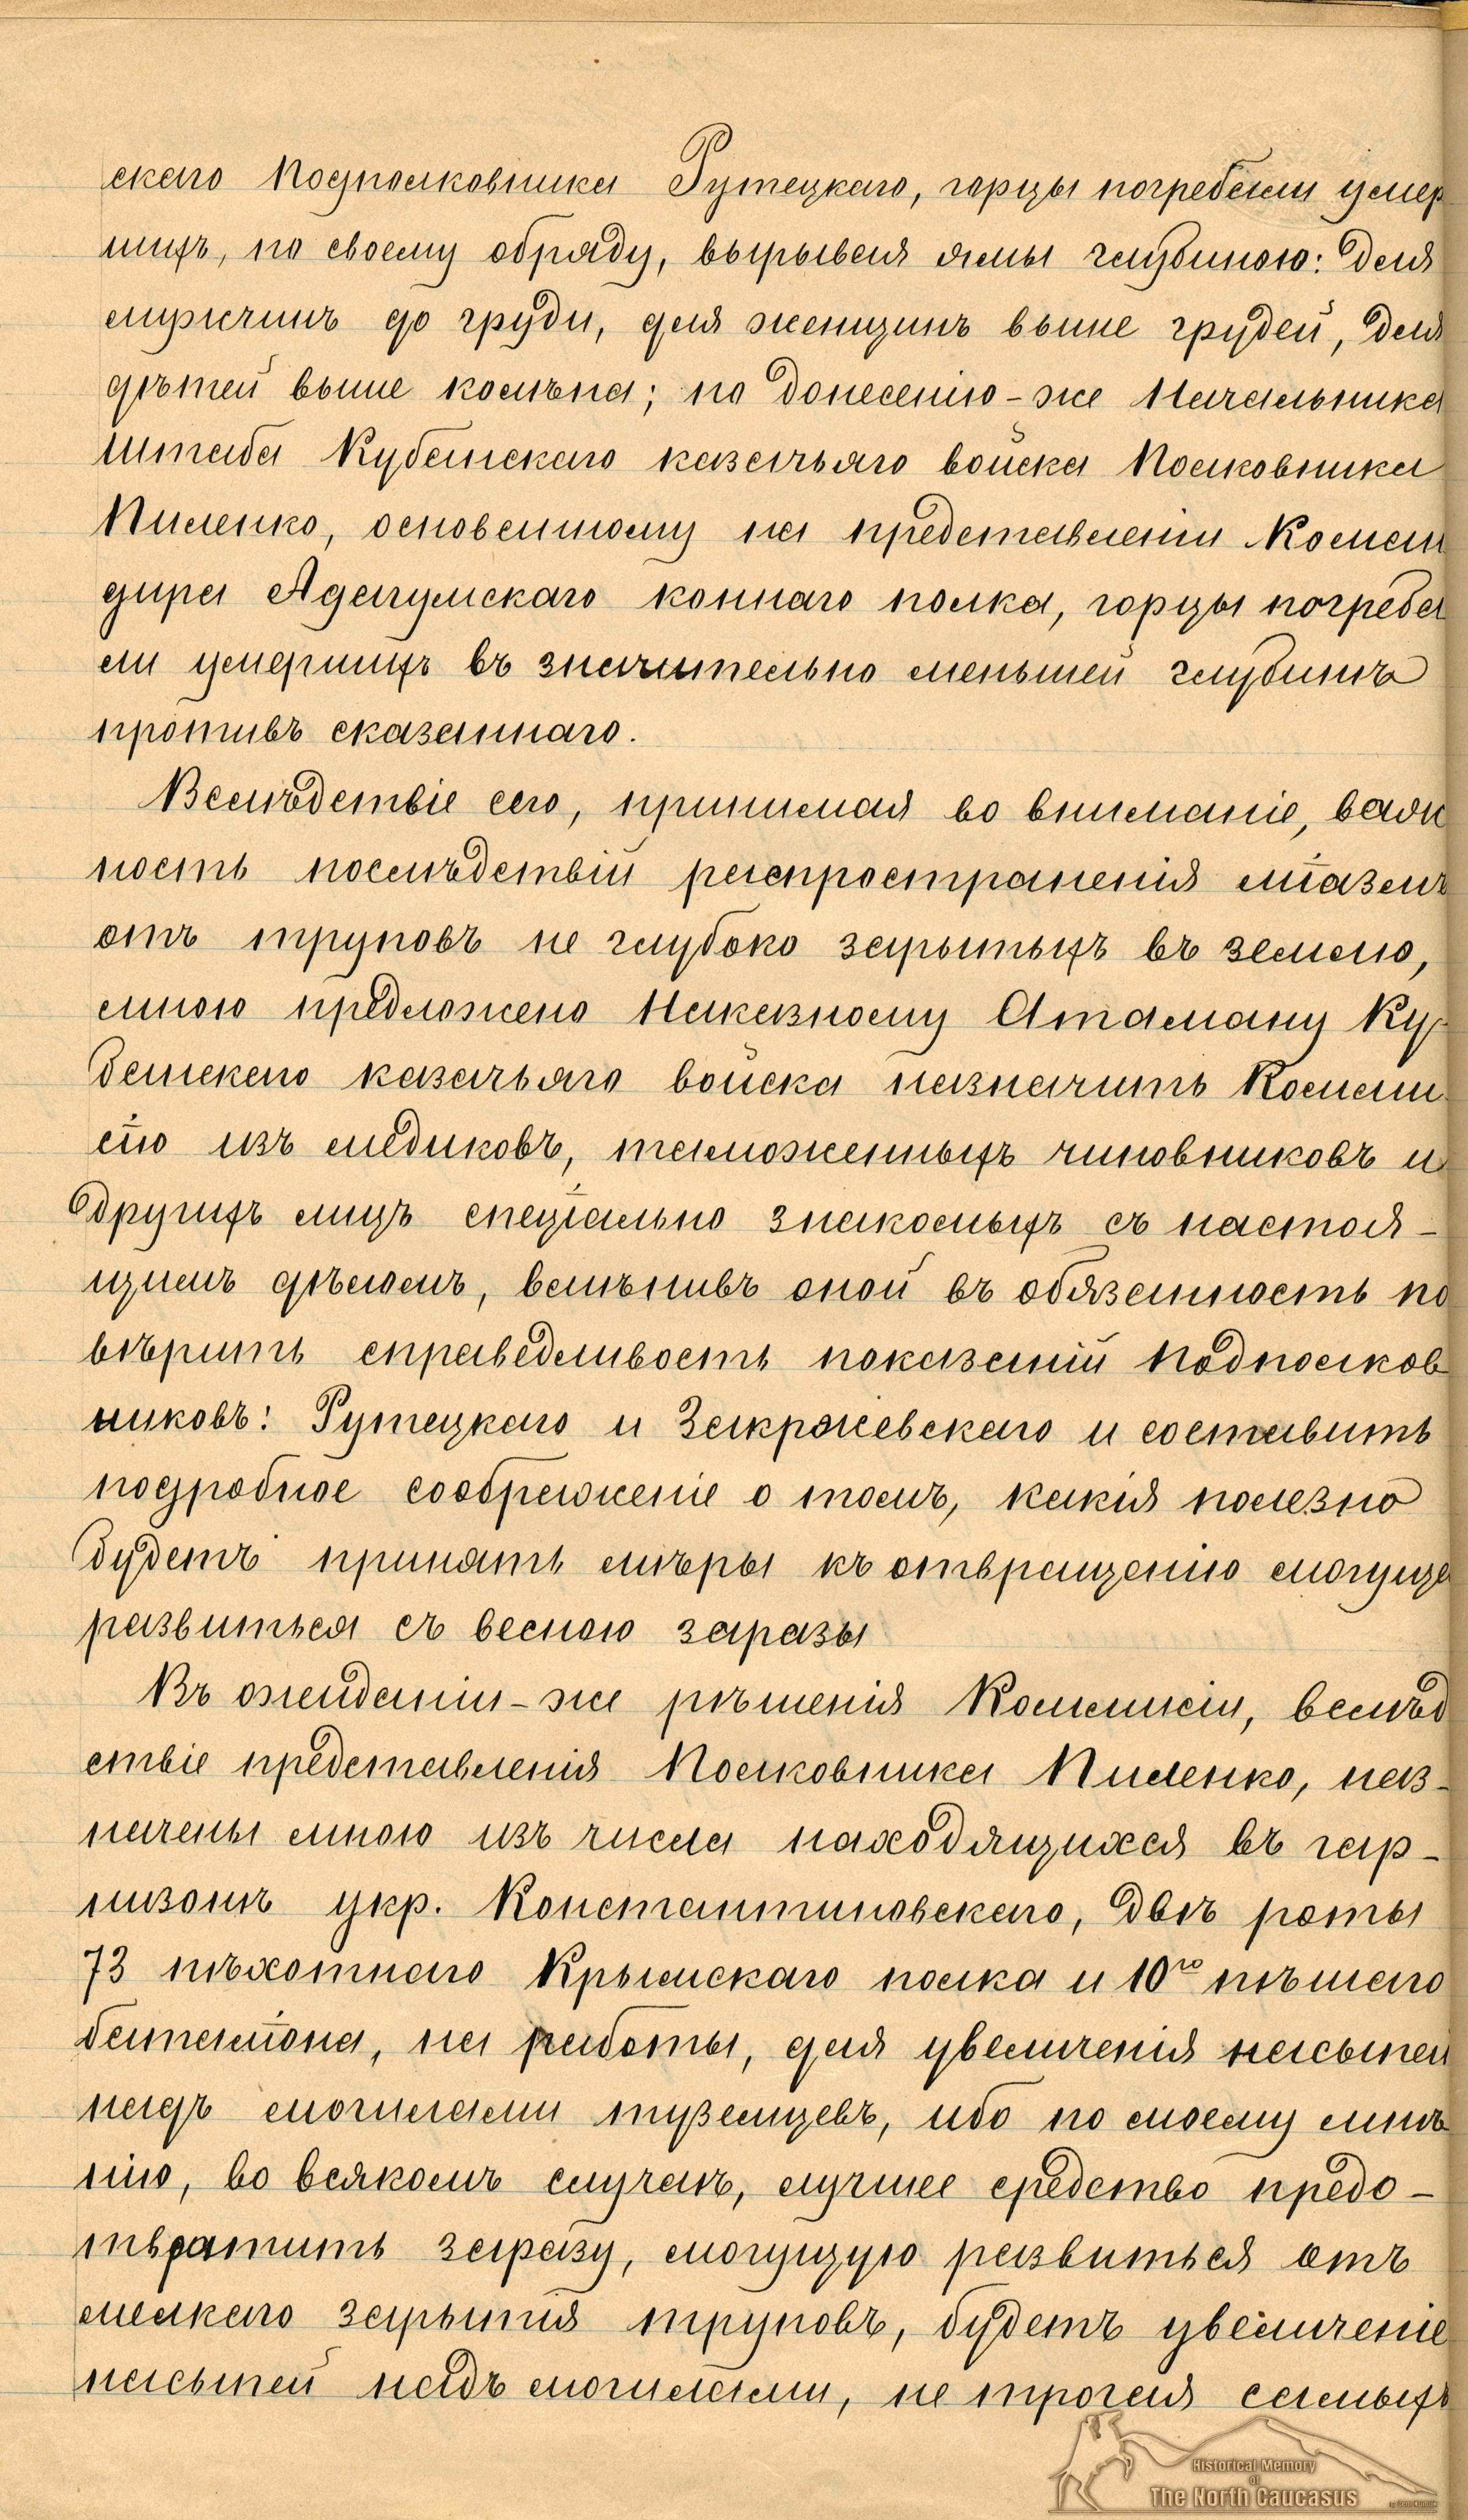 скаго Подполковника Рутецкаго, горцы погребали умер
шихъ, по своему обряду, вырывая ямы глубиною: для
мужчинъ до груди, для женщинъ выше грудей, для
дѣтей выше колѣна; по донесенію-же Начальника
Штаба Кубанскаго казачьяго войска Полковника
Пиленко, основанному на представленіи Коман
дира Адагумскаго коннаго полка, горцы погреба
ли умершихъ въ значительно меньшей глубинѣ
противъ сказаннаго.
Вслѣдствіе сего, принимая во вниманіе, важ
ность послѣдствій распространенія міазмъ
отъ труповъ не глубоко зарытыхъ въ землю,
мною предложено Наказному Атаману Ку
банскаго казачьяго войска назначить Комми
сію изъ медиковъ, таможенныхъ чиновниковъ и
другихъ лицъ спеціально знакомыхъ съ настоя-
щимъ дѣломъ, вмѣнивъ оной въ обязанность по
вѣрить справедливость показаній Подполков
никовъ: Рутецкаго и Закржевскаго и составить
подробное соображеніе о томъ, какія полезно
будетъ принять мѣры къ отвращенію могуще
развиться съ весною заразы
Въ ожиданіи-же рѣшенія Коммисіи, вслѣд
ствіе представленія Полковника Пиленко, наз-
начены мною изъ числа находящихся въ гар-
низонѣ укр. Константиновскаго, двѣ роты
73 пѣхотнаго Крымскаго полка и 10го пѣшаго
баталіона, на работы, для увеличенія насыпей
надъ могилами туземцевъ, ибо по моему мнѣ
нію, во всякомъ случаѣ, лучшее средство предо-
твратить заразу, могущую развиться отъ
мелкаго зарытія труповъ, будетъ увеличеніе
насыпей надъ могилами, не трогая самыхъ
Historical Memory
of
The North Caucasus